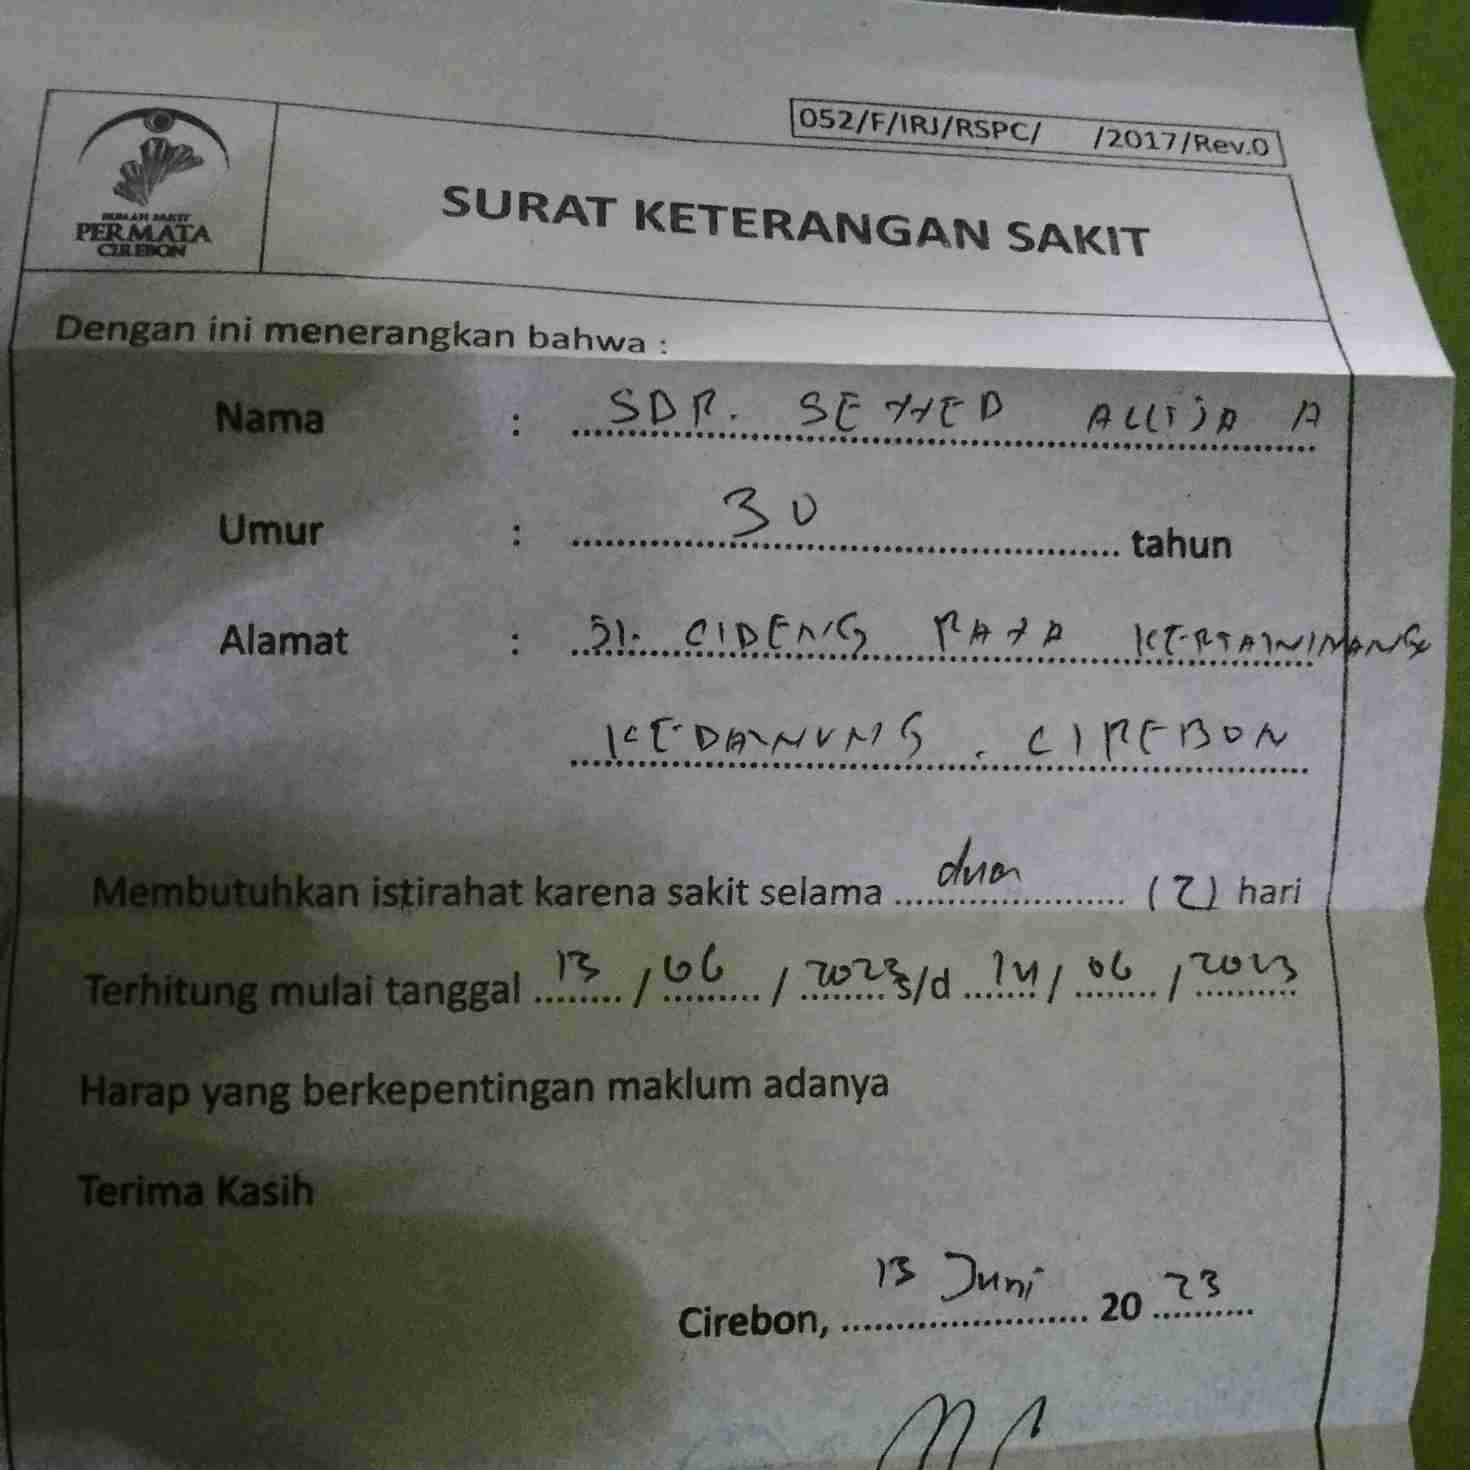 052/F/IRJ/RSPC/ /2017/Rev.0
RUMAH SAKIT
PERMATA
CIREBON
SURAT KETERANGAN SAKIT
Dengan ini menerangkan bahwa :
Nama : SDR. SEYYED ALLIJA A
Umur : 30 tahun
Alamat : Jl. CIDENG RAYA KERTAWINANG
KEDAWUNG . CIREBON
Membutuhkan istirahat karena sakit selama dua (2) hari
Terhitung mulai tanggal 13 / 06 / 2023 s/d 14 / 06 / 2023
Harap yang berkepentingan maklum adanya
Terima Kasih
Cirebon, 13 Juni 20 23